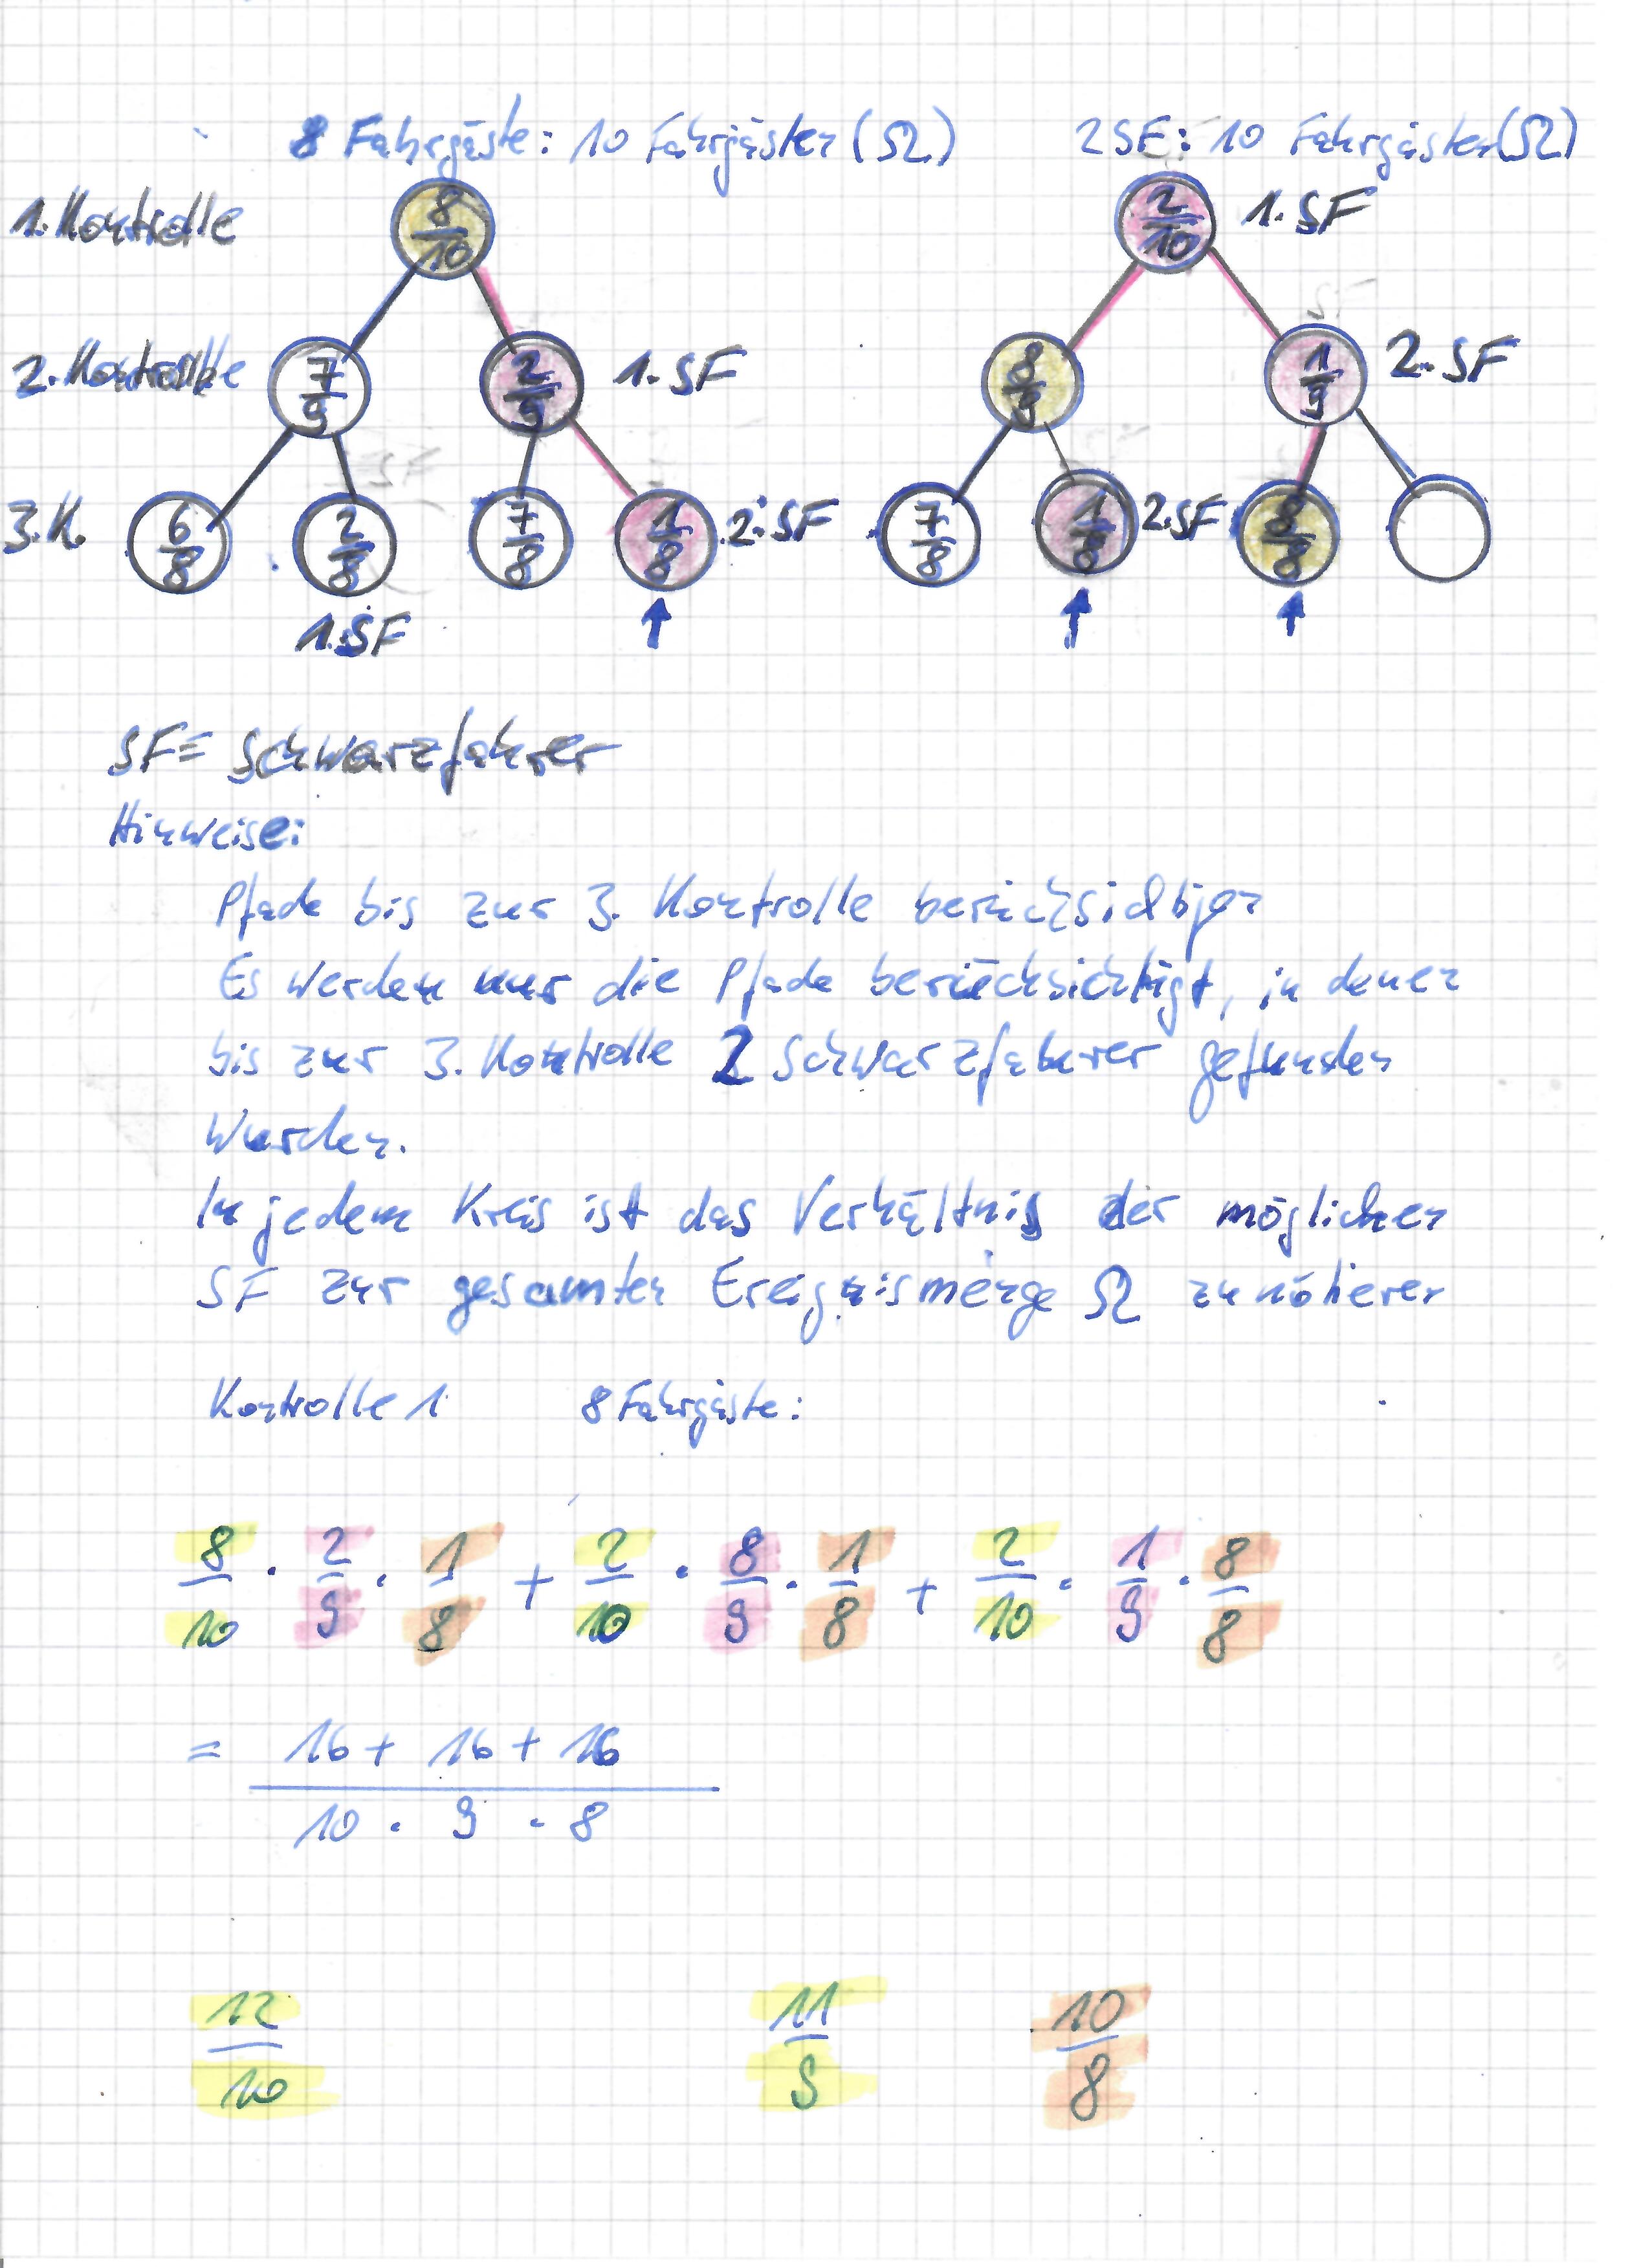 8 Fahrgäste: 10 Fahrgästen (Ω) 2 SF: 10 Fahrgästen (Ω)
1. Kontrolle 8/10 2/10 1. SF
2. Kontrolle 7/9 2/9 1. SF 8/9 1/9 2. SF
3. K. 6/8 2/8 7/8 1/8 2. SF 7/8 1/8 2. SF 8/8
1. SF
SF = Schwarzfahrer
Hinweise:
Pfade bis zur 3. Kontrolle
Es werden nur die Pfade berücksichtigt, in denen
bis zur 3. Kontrolle 2 Schwarzfahrer gefunden
wurden.
In jedem Kreis ist das Verhältnis der möglichen
SF zur gesamten Ereignismenge Ω zu notieren
Kontrolle 1 8 Fahrgäste:
8/10 · 2/9 · 1/8 + 2/10 · 8/9 · 1/8 + 2/10 · 1/9 · 8/8
= (16 + 16 + 16)/(10 · 9 · 8)
12/10 11/9 10/8